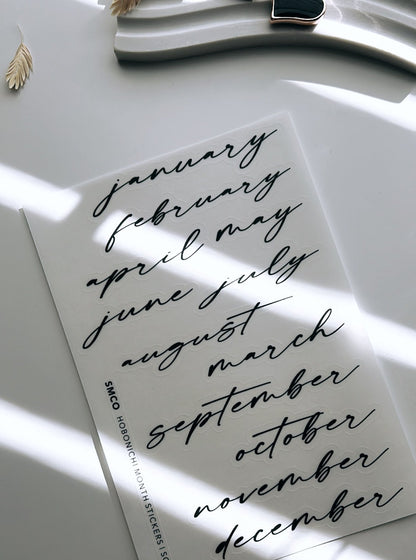 january
february
april may
june july
august
march
september
october
november
december
SMCO HOBONICHI MONTH STICKERS |